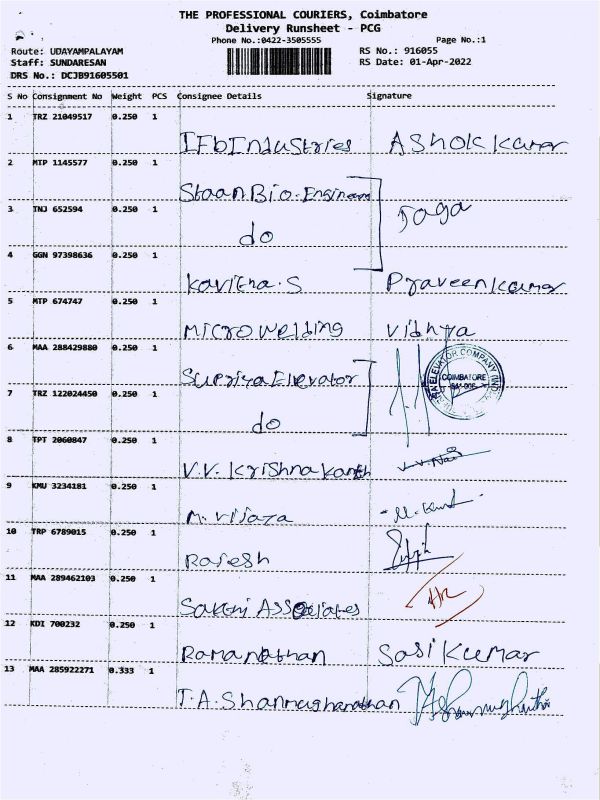 THE PROFESSIONAL COURIERS, Coimbatore
Delivery Runsheet - PCG
Phone No.:0422-3505555 Page No.:1
Route: UDAYAMPALAYAM RS No.: 916055
Staff: SUNDARESAN RS Date: 01-Apr-2022
DRS No.: DCJB91605501
S No Consignment No Weight PCS Consignee Details Signature
1 TRZ 21049517 0.250 1
IFb Industries Ashok Kumar
2 MTP 1145577 0.250 1
Staan Bio. Engineer
3 TNJ 652594 0.250 1
do Jaga
4 GGN 97398636 0.250 1
Kavitha. S Praveen Kumar
5 MTP 674747 0.250 1
Micro welding Vidhya
6 MAA 288429880 0.250 1
Supriya Elevator
ELEVATOR COMPANY
COIMBATORE
7 TRZ 122024450 0.250 1
do
8 TPT 2060847 0.250 1
V.V. Krishna Kanth
9 KMU 3234181 0.250 1
M. Vijaya
10 TRP 6789015 0.250 1
Rajesh
11 MAA 289462103 0.250 1
Sakthi Associates
12 KDI 700232 0.250 1
Ramanathan Sasi Kumar
13 MAA 285922271 0.333 1
T.A. Shanmughanathan